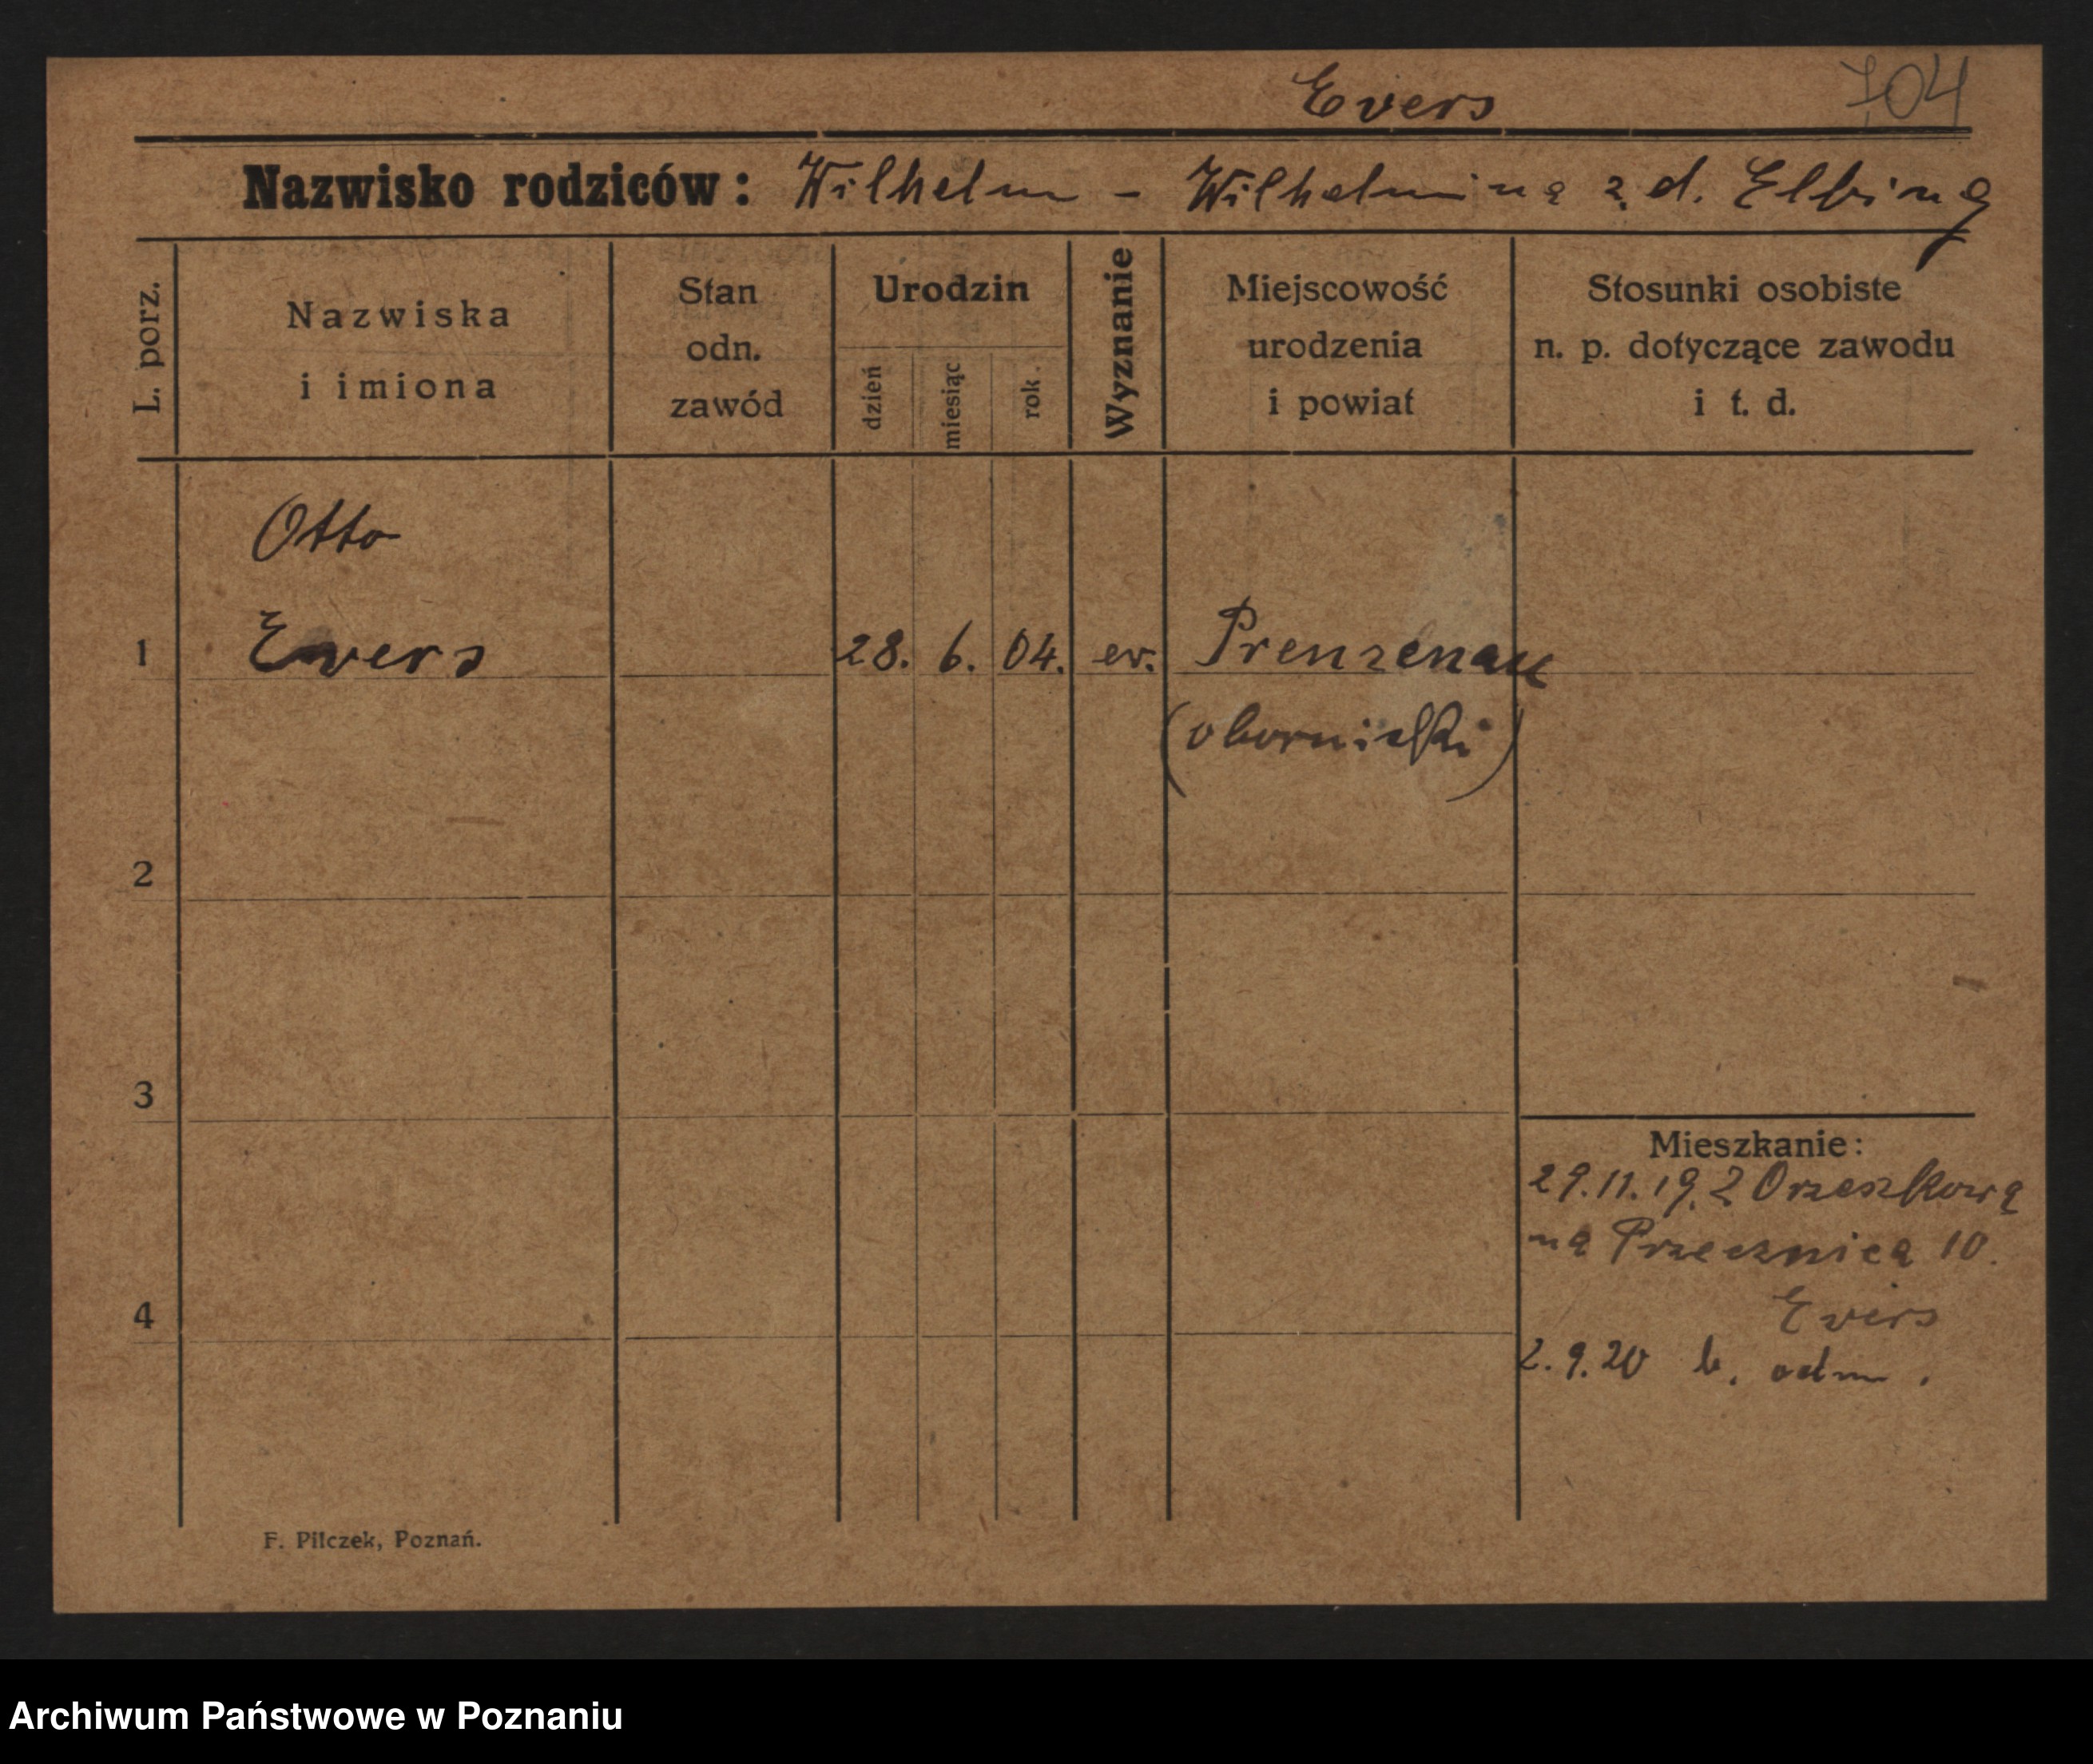 Evers 704
Nazwisko rodziców: Wilhelm - Wilhelmina z. d. Elbing
L. porz.
Nazwiska
i imiona
Stan
odn.
zawód
Urodzin
dzień
miesiąc
rok.
Wyznanie
Miejscowość
urodzenia
i powiat
Stosunki osobiste
n. p. dotyczące zawodu
i t. d.
Otto
1 Evers 28. 6. 04. ev. Prenzenau
(obornicki)
2
3
Mieszkanie:
29.11.19. z Orzeszkowa
na Przecznica 10.
4 Evers
2.9.20 b. odm.
F. Pilczek, Poznań.
Archiwum Państwowe w Poznaniu